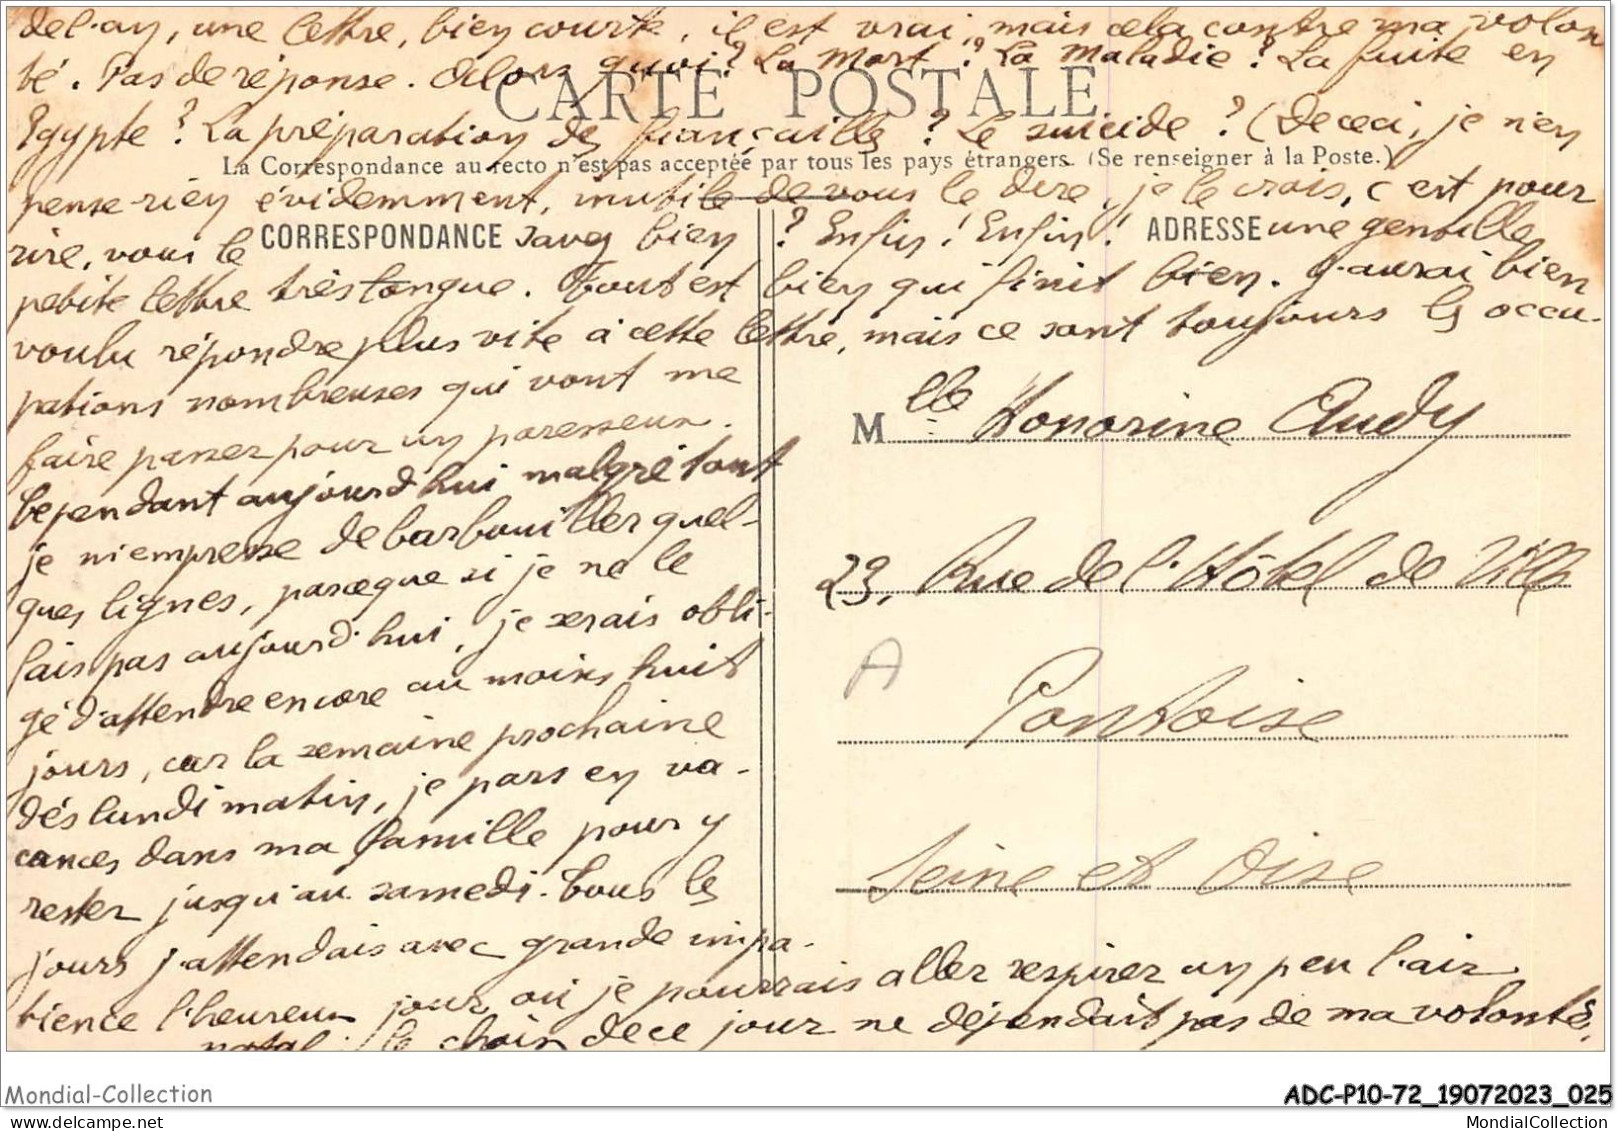 delay, une lettre, bien courte, il est vrai, mais cela contre ma volon
té. Pas de réponse. Alors quoi? La Mort? La Maladie? La fuite en
CARTE POSTALE
Egypte? La préparation des fiançailles? Le suicide? (De ceci, je n'en
La Correspondance au recto n'est pas acceptée par tous les pays étrangers. (Se renseigner à la Poste.)
pense rien évidemment, inutile de vous le dire, je le crois, c'est pour
rire, vous le savez bien? Enfin! Enfin! une gentille
CORRESPONDANCE
ADRESSE
petite lettre très longue. Tout est bien qui finit bien. J'aurai bien
voulu répondre plus vite à cette lettre, mais ce sont toujours les occu-
pations nombreuses qui vont me
faire passer pour un paresseux.
Cependant aujourd'hui malgré tout
je m'empresse de barbouiller quel-
ques lignes, parceque si je ne le
fais pas aujourd'hui, je serais obli-
gé d'attendre encore au moins huit
jours, car la semaine prochaine
dés lundi matin, je pars en va-
cances dans ma famille pour y
rester jusqu'au samedi. Tous les
jours j'attendais avec grande impa-
tience l'heureux jour où je pourrais aller respirer un peu l'air
natal; le choix de ce jour ne dépendait pas de ma volonté,
Mlle Honorine Audy
29, Rue de l'Hôtel de Ville
A
Pontoise
Seine et Oise
Mondial-Collection
ADC-P10-72_19072023_025
www.mondial-collection.com
MondialCollection